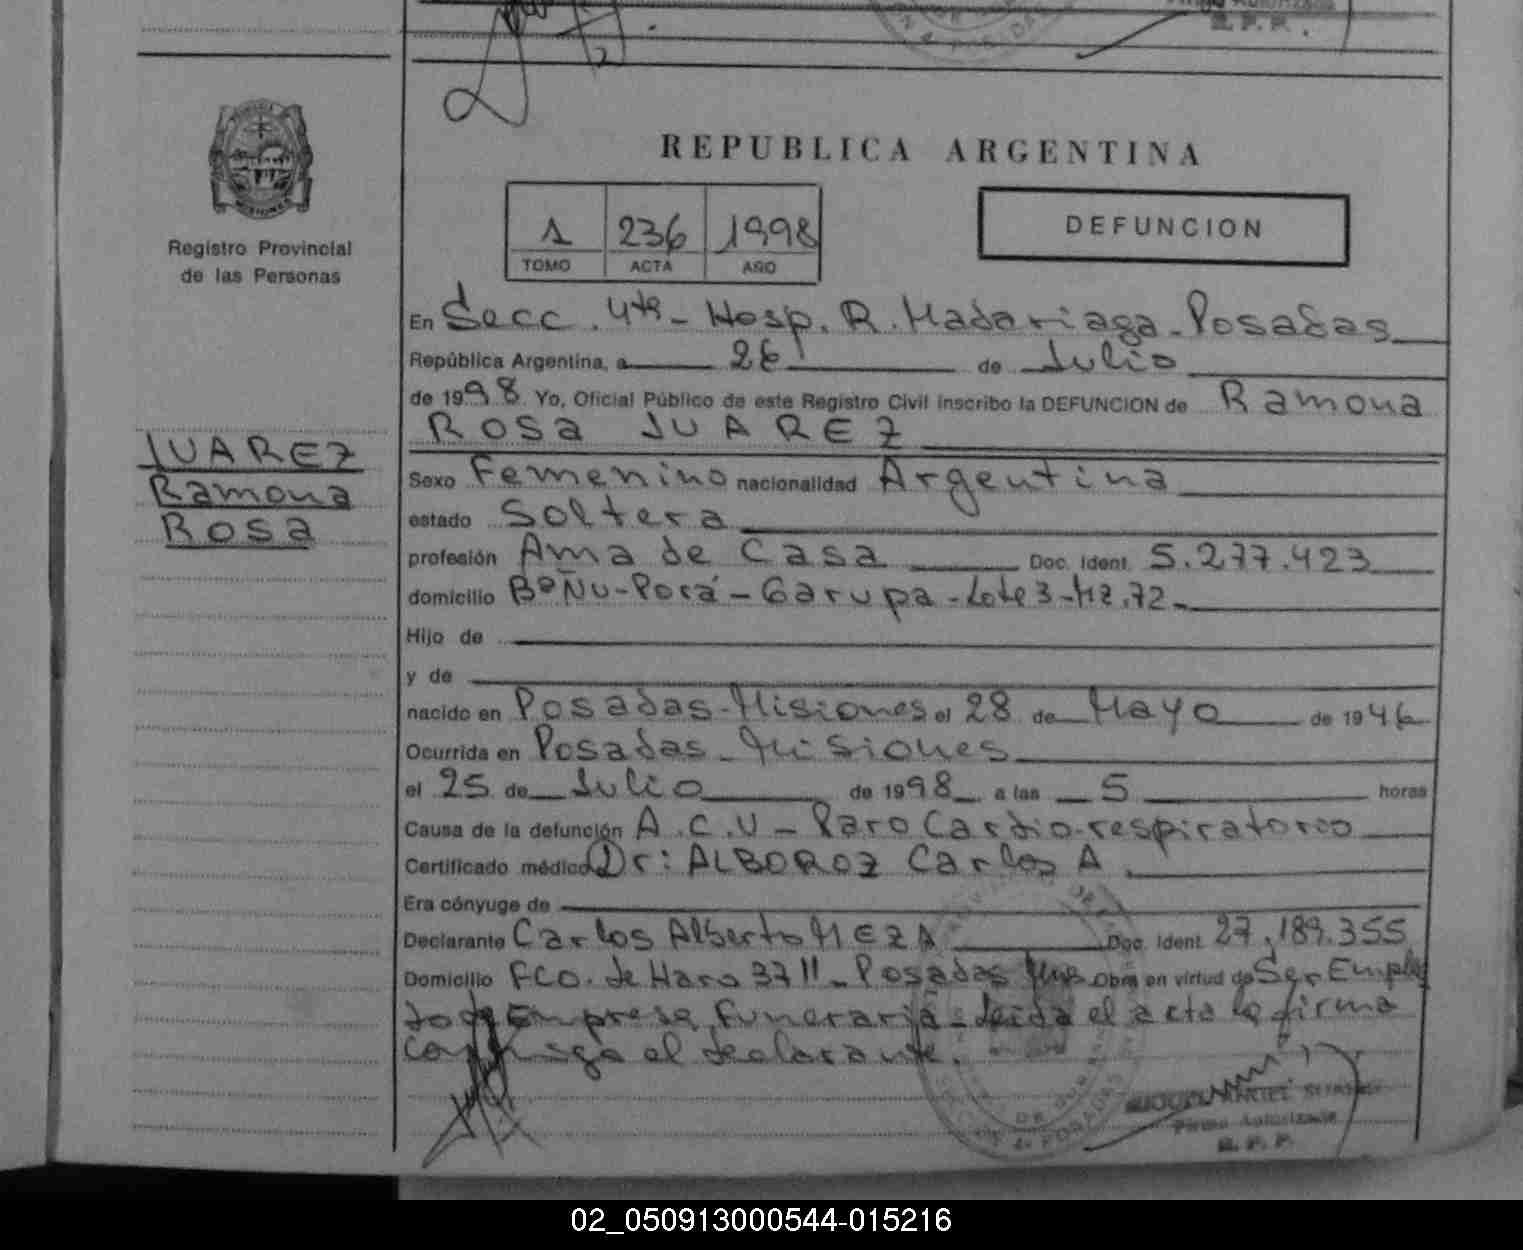 REPUBLICA ARGENTINA
Registro Provincial
de las Personas
1 236 1998
TOMO ACTA AÑO
DEFUNCION
En Secc. 4ta - Hosp. R. Madariaga - Posadas
República Argentina, a 26 de Julio
de 1998. Yo, Oficial Público de este Registro Civil inscribo la DEFUNCION de Ramona
ROSA JUAREZ
JUAREZ
Ramona
ROSA
Sexo Femenino nacionalidad Argentina
estado Soltera
profesión Ama de Casa Doc. Ident. 5.277.423
domicilio Bº Ñu-Porá - Garupa - Lote 3 - Mz. 72 -
Hijo de
y de
nacido en Posadas - Misiones el 28 de Mayo de 1946
Ocurrida en Posadas - Misiones
el 25 de Julio de 1998 a las 5 horas
Causa de la defunción A.C.V - Paro Cardio-respiratorio
Certificado médico Dr: ALBOROZ Carlos A.
Era cónyuge de
Declarante Carlos Alberto MEZA Doc. Ident. 27.189.355
Domicilio FCO. de Haro 3711 - Posadas Mnes Obra en virtud de Ser Emplea
do de Empresa Funeraria - Leída el acta la firma
conmigo el declarante.
Firma Autorizada
R. P. P.
02_050913000544-015216